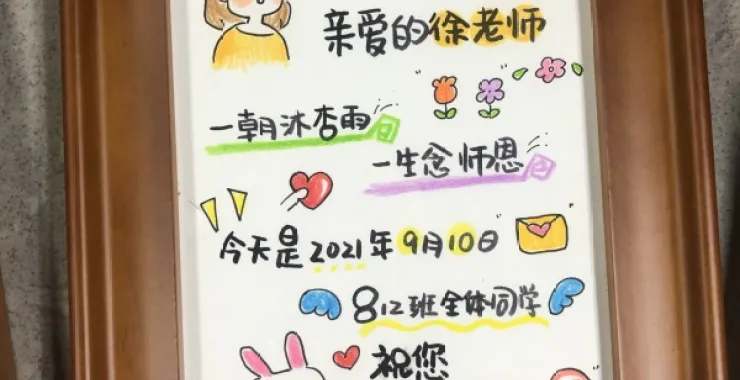 亲爱的徐老师
一朝沐杏雨
一生念师恩
今天是2021年9月10日
812班全体同学
祝您